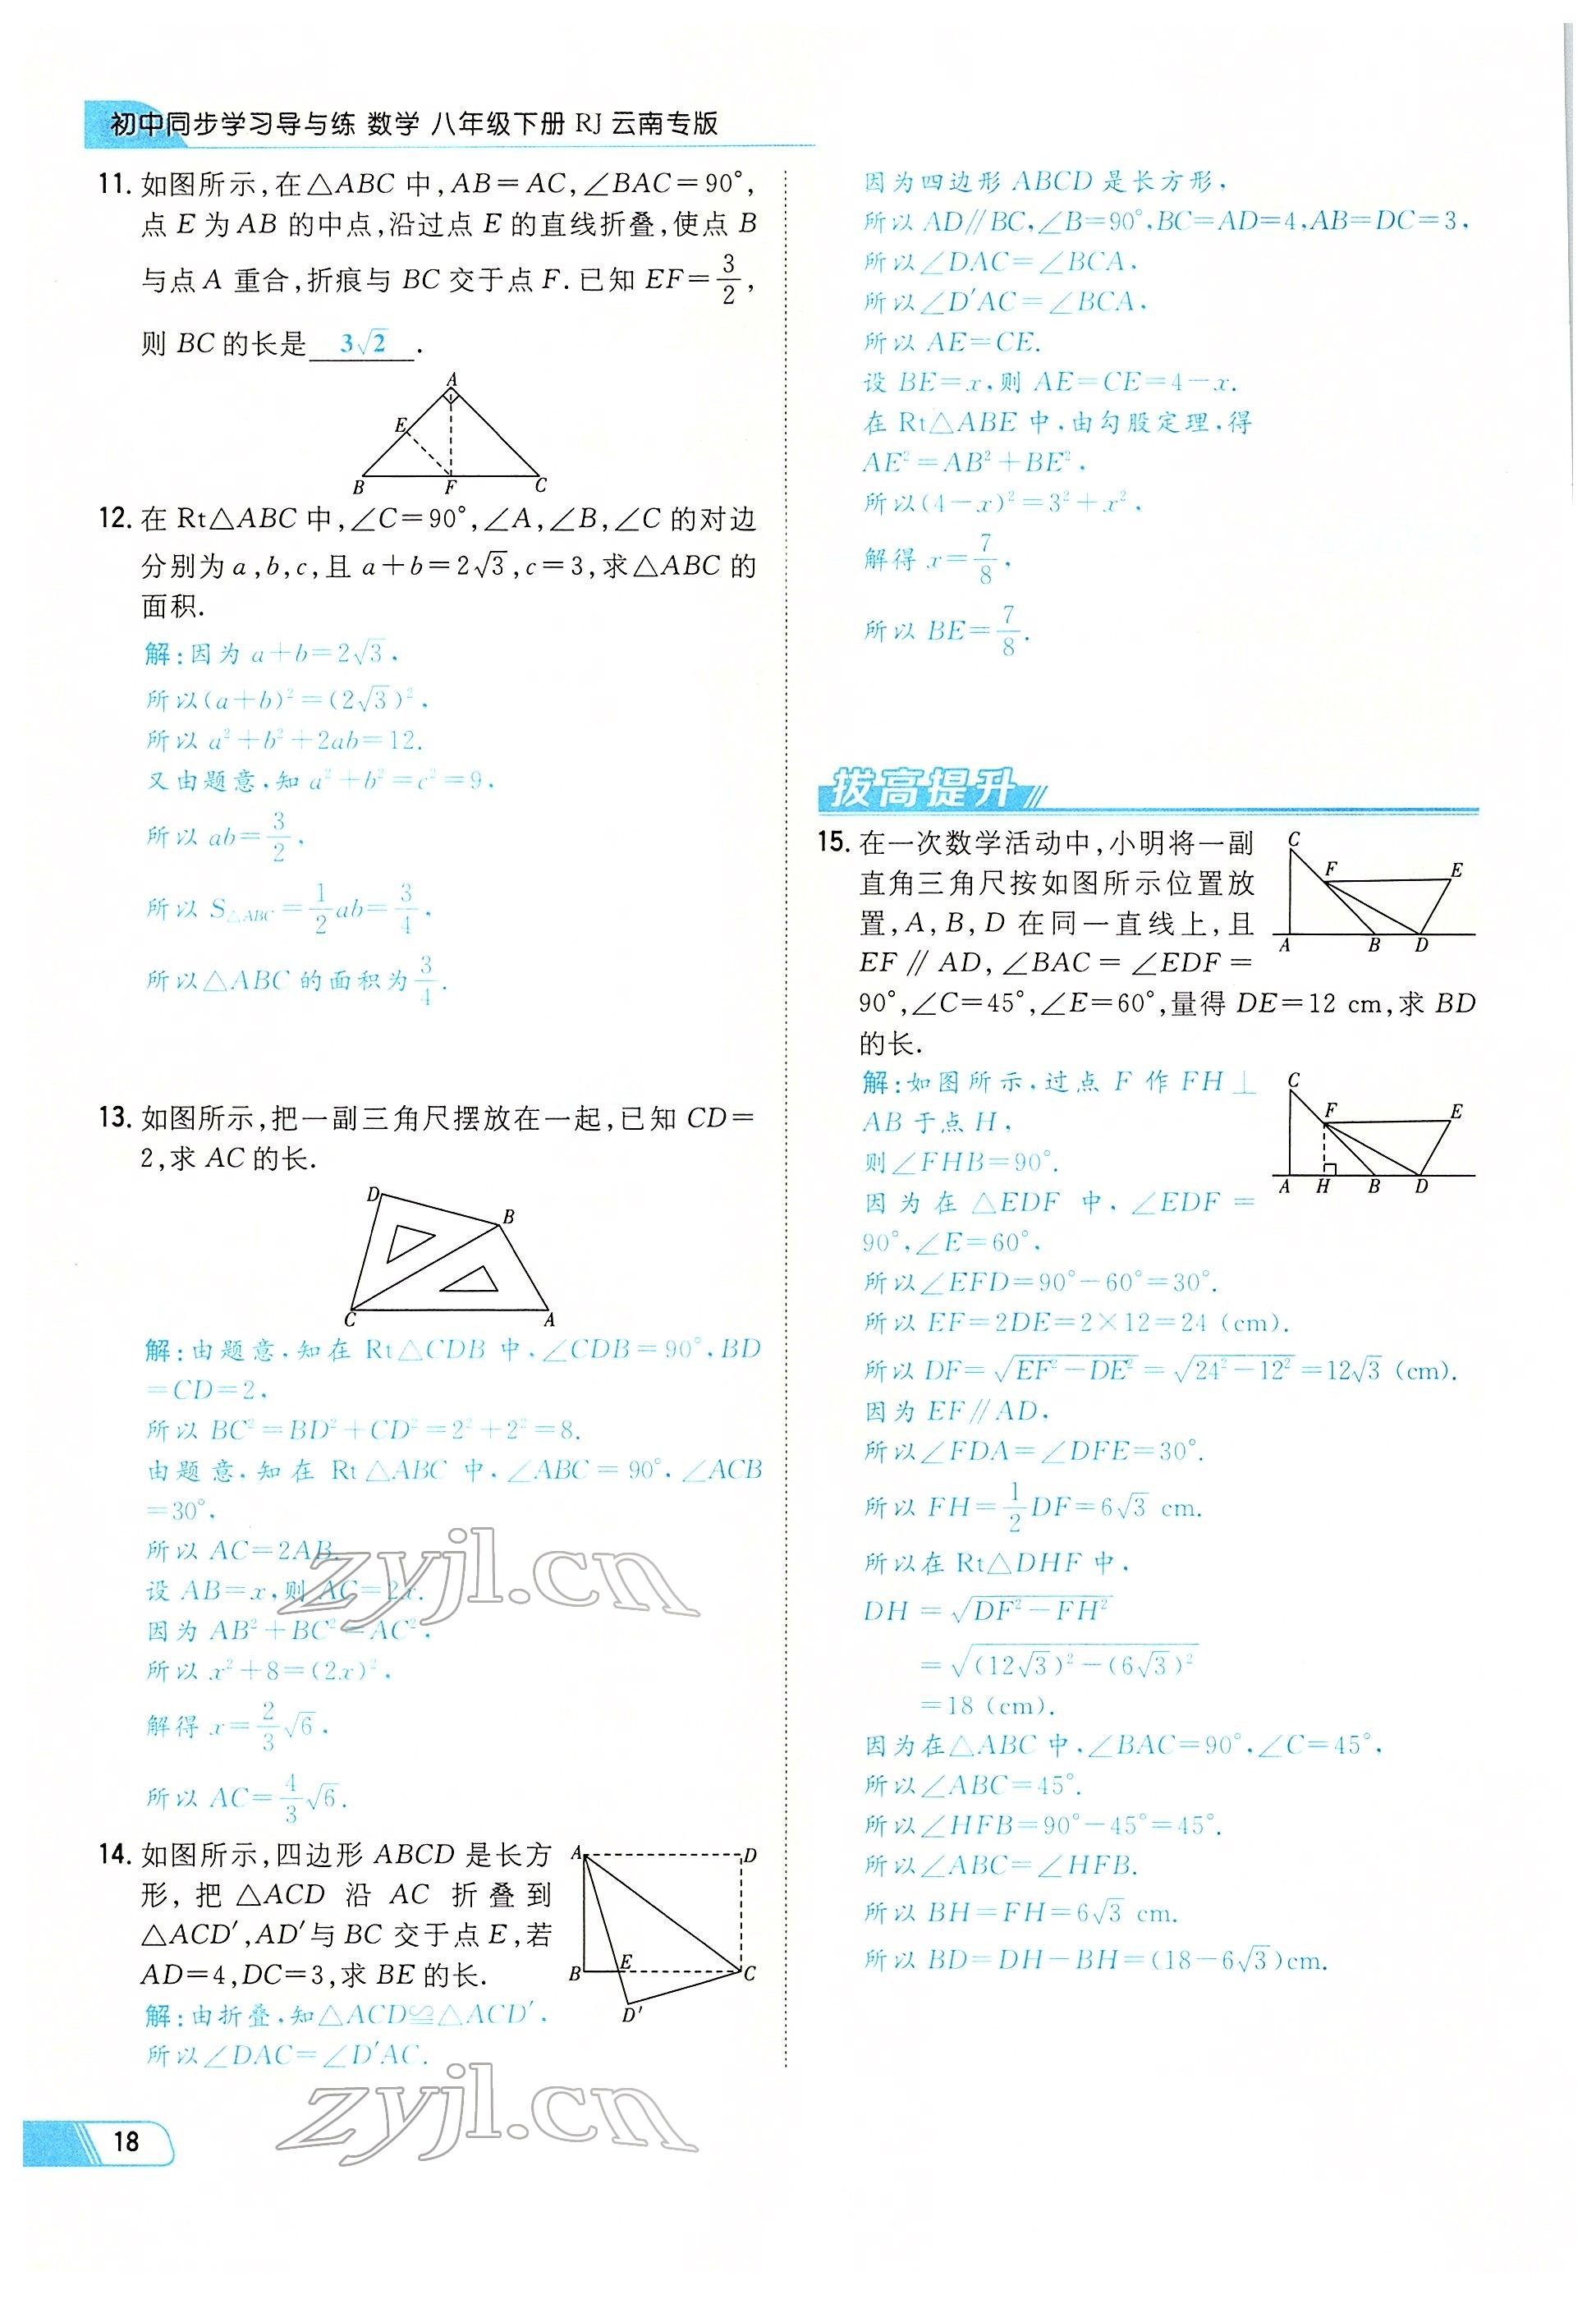 初中同步学习导与练 数学 八年级下册 RJ 云南专版
11. 如图所示,在△ABC 中,AB=AC,∠BAC=90°,
点 E 为 AB 的中点,沿过点 E 的直线折叠,使点 B
与点 A 重合,折痕与 BC 交于点 F. 已知 EF=3/2,
则 BC 的长是 3√2 .
A
E
B F C
12. 在 Rt△ABC 中,∠C=90°,∠A,∠B,∠C 的对边
分别为 a,b,c,且 a+b=2√3,c=3,求△ABC 的
面积.
解:因为 a+b=2√3,
所以(a+b)²=(2√3)²,
所以 a²+b²+2ab=12.
又由题意,知 a²+b²=c²=9,
所以 ab=3/2,
所以 S△ABC=1/2ab=3/4,
所以△ABC 的面积为3/4.
13. 如图所示,把一副三角尺摆放在一起,已知 CD=
2,求 AC 的长.
D
B
C A
解:由题意,知在 Rt△CDB 中,∠CDB=90°,BD
=CD=2,
所以 BC²=BD²+CD²=2²+2²=8.
由题意,知在 Rt△ABC 中,∠ABC=90°,∠ACB
=30°,
所以 AC=2AB.
设 AB=x,则 AC=2x.
因为 AB²+BC²=AC²,
所以 x²+8=(2x)²,
解得 x=2/3√6,
所以 AC=4/3√6.
14. 如图所示,四边形 ABCD 是长方
形,把△ACD 沿 AC 折叠到
△ACD′,AD′与 BC 交于点 E,若
AD=4,DC=3,求 BE 的长.
A D
B E C
D′
解:由折叠,知△ACD≌△ACD′,
所以∠DAC=∠D′AC.
因为四边形 ABCD 是长方形,
所以 AD∥BC,∠B=90°,BC=AD=4,AB=DC=3,
所以∠DAC=∠BCA,
所以∠D′AC=∠BCA,
所以 AE=CE.
设 BE=x,则 AE=CE=4-x.
在 Rt△ABE 中,由勾股定理,得
AE²=AB²+BE²,
所以(4-x)²=3²+x²,
解得 x=7/8,
所以 BE=7/8.
拔高提升
15. 在一次数学活动中,小明将一副
直角三角尺按如图所示位置放
置,A,B,D 在同一直线上,且
EF∥AD,∠BAC=∠EDF=
90°,∠C=45°,∠E=60°,量得 DE=12 cm,求 BD
的长.
C
F E
A B D
解:如图所示,过点 F 作 FH⊥
AB 于点 H,
则∠FHB=90°.
因为在△EDF 中,∠EDF=
90°,∠E=60°,
C
F E
A H B D
所以∠EFD=90°-60°=30°.
所以 EF=2DE=2×12=24 (cm).
所以 DF=√(EF²-DE²)=√(24²-12²)=12√3 (cm).
因为 EF∥AD,
所以∠FDA=∠DFE=30°.
所以 FH=1/2DF=6√3 cm.
所以在 Rt△DHF 中,
DH=√(DF²-FH²)
=√((12√3)²-(6√3)²)
=18 (cm).
因为在△ABC 中,∠BAC=90°,∠C=45°,
所以∠ABC=45°.
所以∠HFB=90°-45°=45°.
所以∠ABC=∠HFB.
所以 BH=FH=6√3 cm.
所以 BD=DH-BH=(18-6√3)cm.
zyjl.cn
zyjl.cn
18